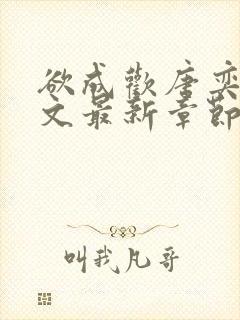 欲成歡唐奕
文最新章節
叫我凡哥